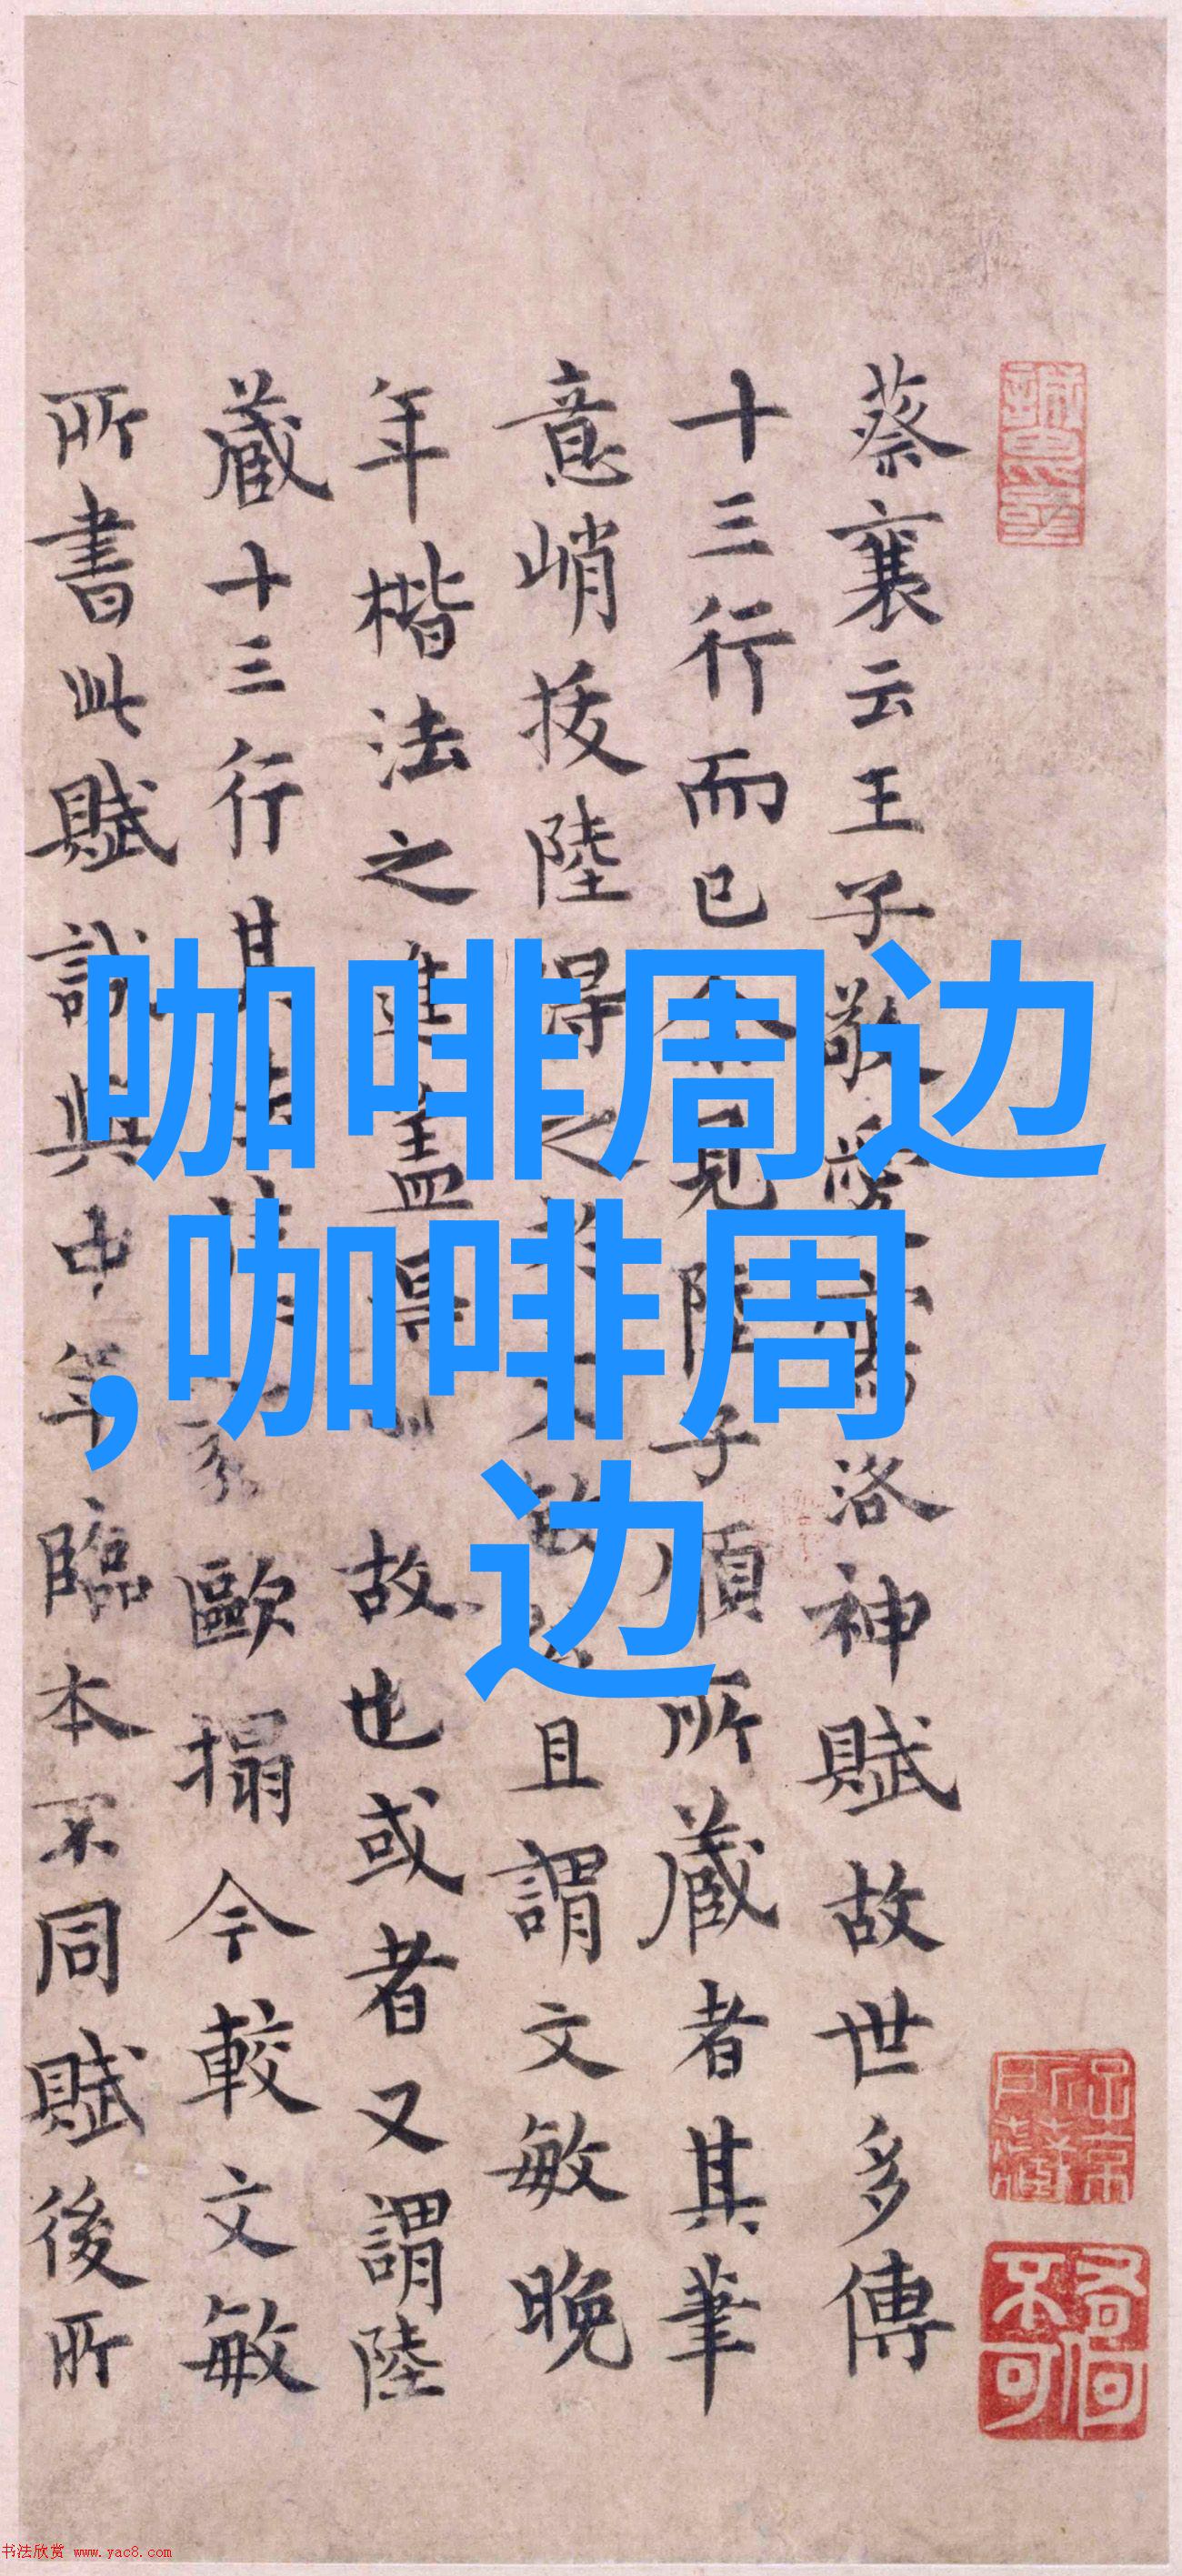 咖啡周边
,咖啡周
边
蔡襄云王子敬愛寫洛神賦故世多傳
十三行而已余見陸子順所藏者其筆
意峭拔陸得之於文敏且謂文敏晚
年楷法之進蓋得故也或者又謂陸
藏十三行其歐搨今較文敏
所書此賦誠與中年臨本不同賦後所
书法欣赏 www.yac8.com